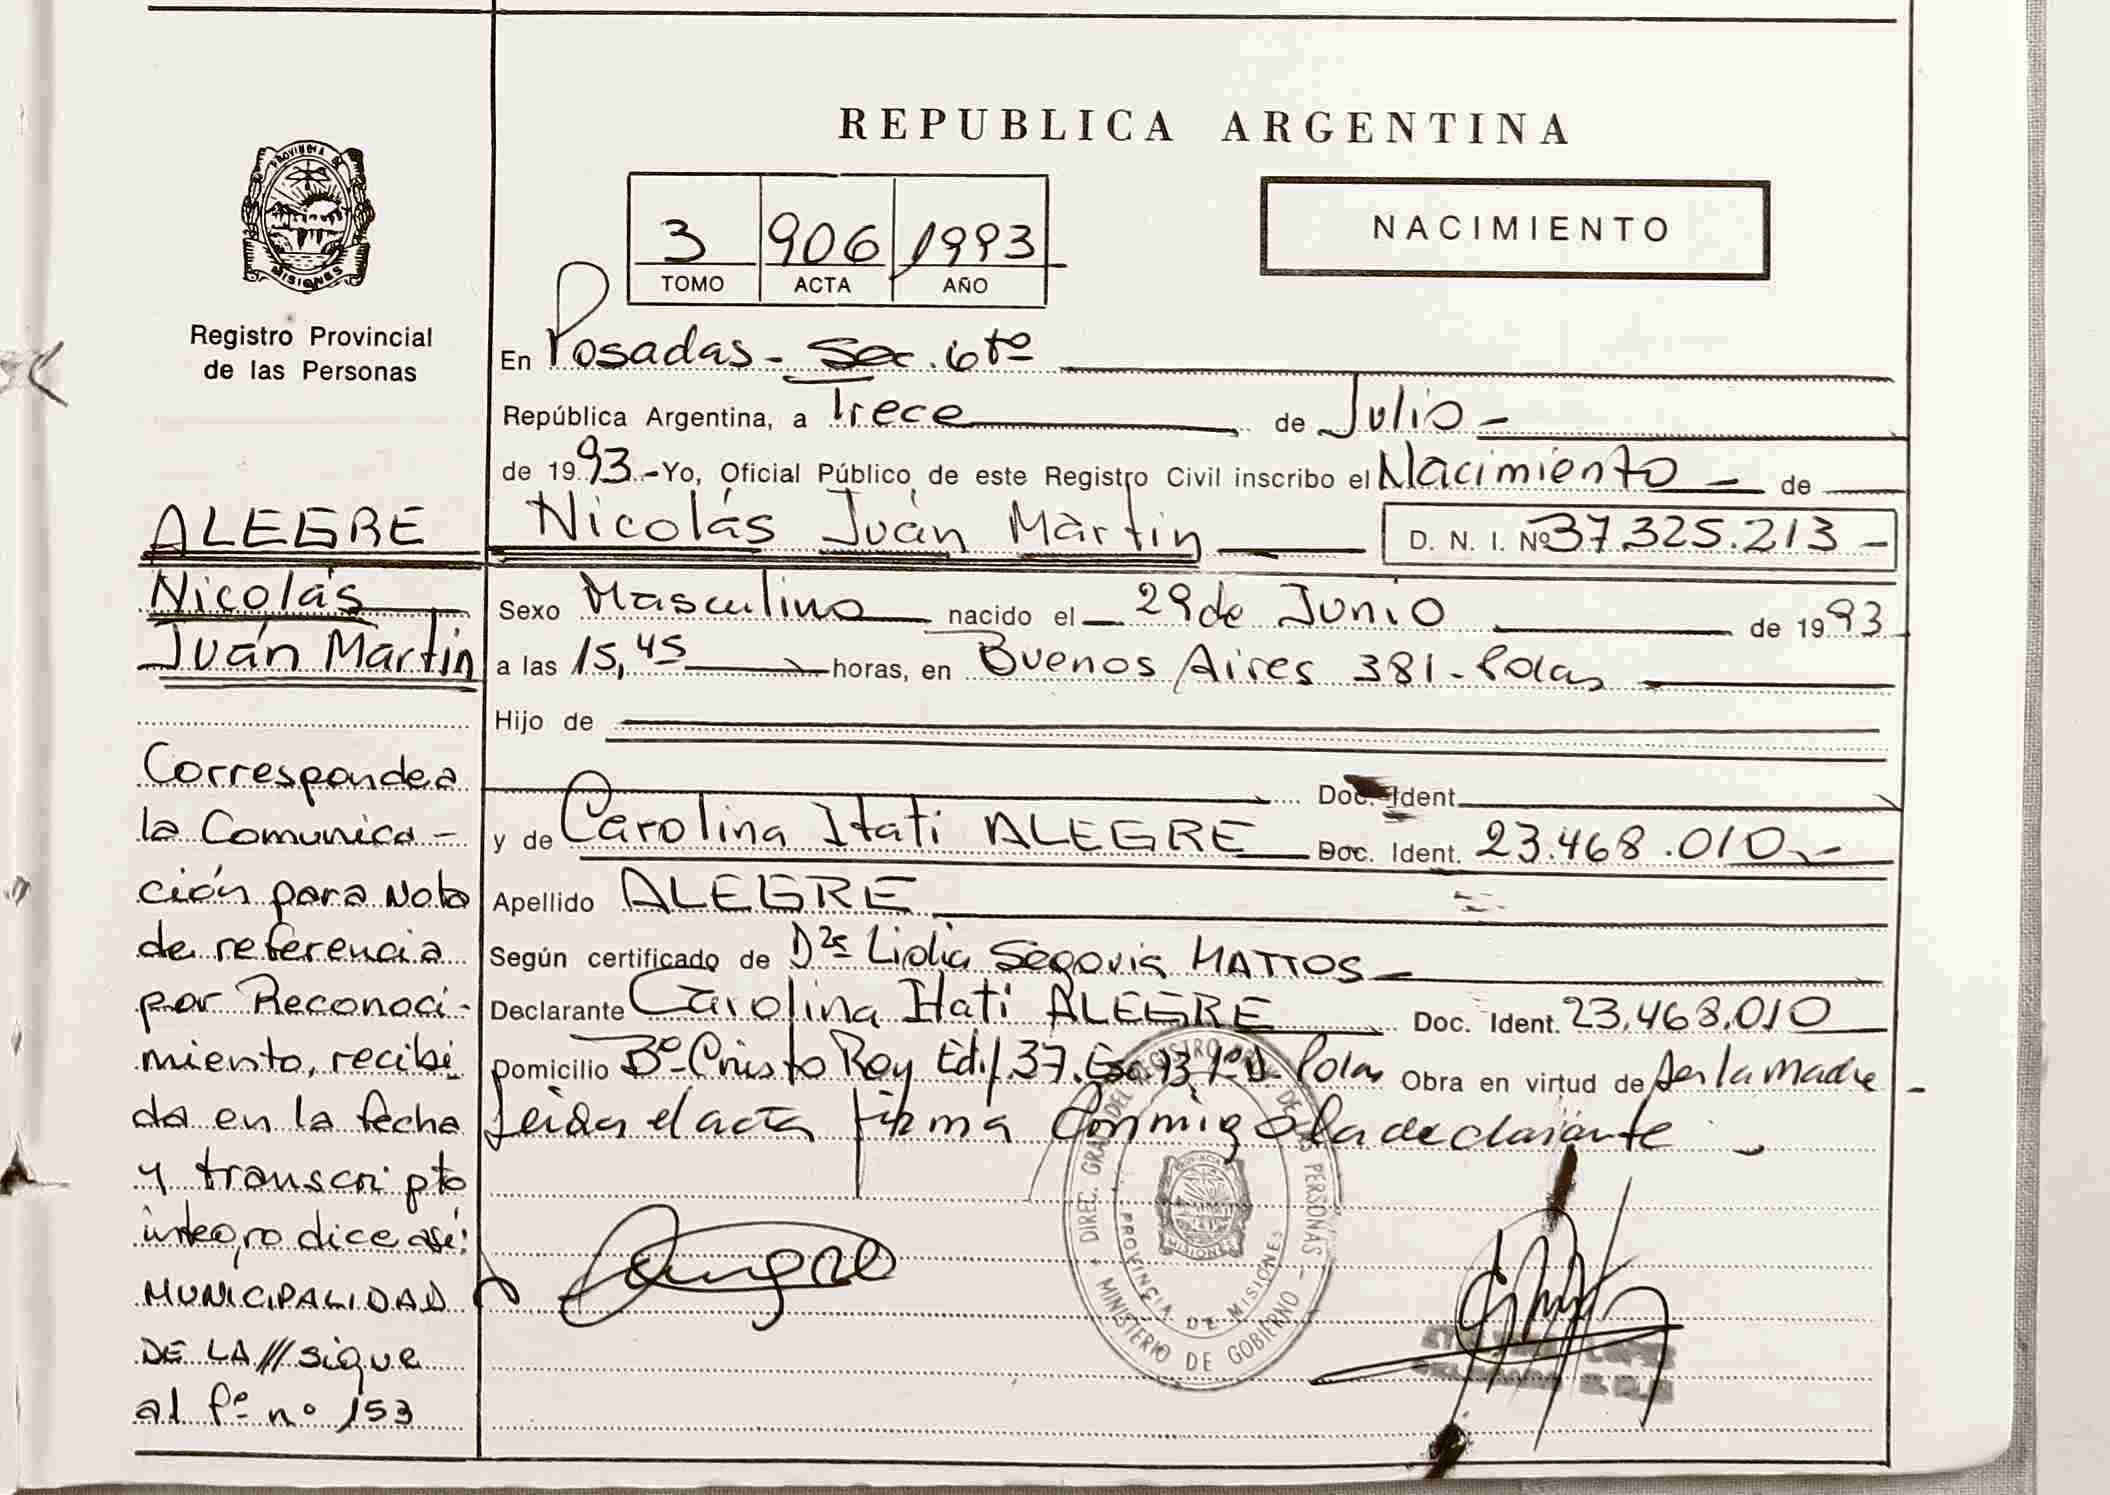 REPUBLICA ARGENTINA
PROVINCIA DE
MISIONES
Registro Provincial
de las Personas
3 906 1993
TOMO ACTA AÑO
NACIMIENTO
En Posadas - Sec. 6tº
República Argentina, a Trece de Julio -
de 1993.- Yo, Oficial Público de este Registro Civil inscribo el Nacimiento - de
Nicolás Juán Martín D. N. I. Nº 37.325.213 -
Sexo Masculino nacido el 29 de Junio de 1993
a las 15,45 horas, en Buenos Aires 381 - Pdas
Hijo de
Doc. Ident.
y de Carolina Itatí ALEGRE Doc. Ident. 23.468.010.-
Apellido ALEGRE
Según certificado de Dra Lidia Segovia MATTOS
Declarante Carolina Itatí ALEGRE Doc. Ident. 23.468.010
Domicilio Bº Cristo Rey Edif. 37. Esc. 13 1º D. Pdas Obra en virtud de ser la madre -
Leida el acta firma conmigo la declarante.
DIREC. GRAL. DEL REGISTRO DE LAS PERSONAS
PROVINCIA DE MISIONES
MINISTERIO DE GOBIERNO
MISIONES
ALEGRE
Nicolás
Juán Martín
Corresponde a
la Comunica-
ción para Nota
de referencia
por Reconoci-
miento, recibi
da en la fecha
y transcripto
integro dice así:
MUNICIPALIDAD
DE LA /// sigue
al fº nº 153